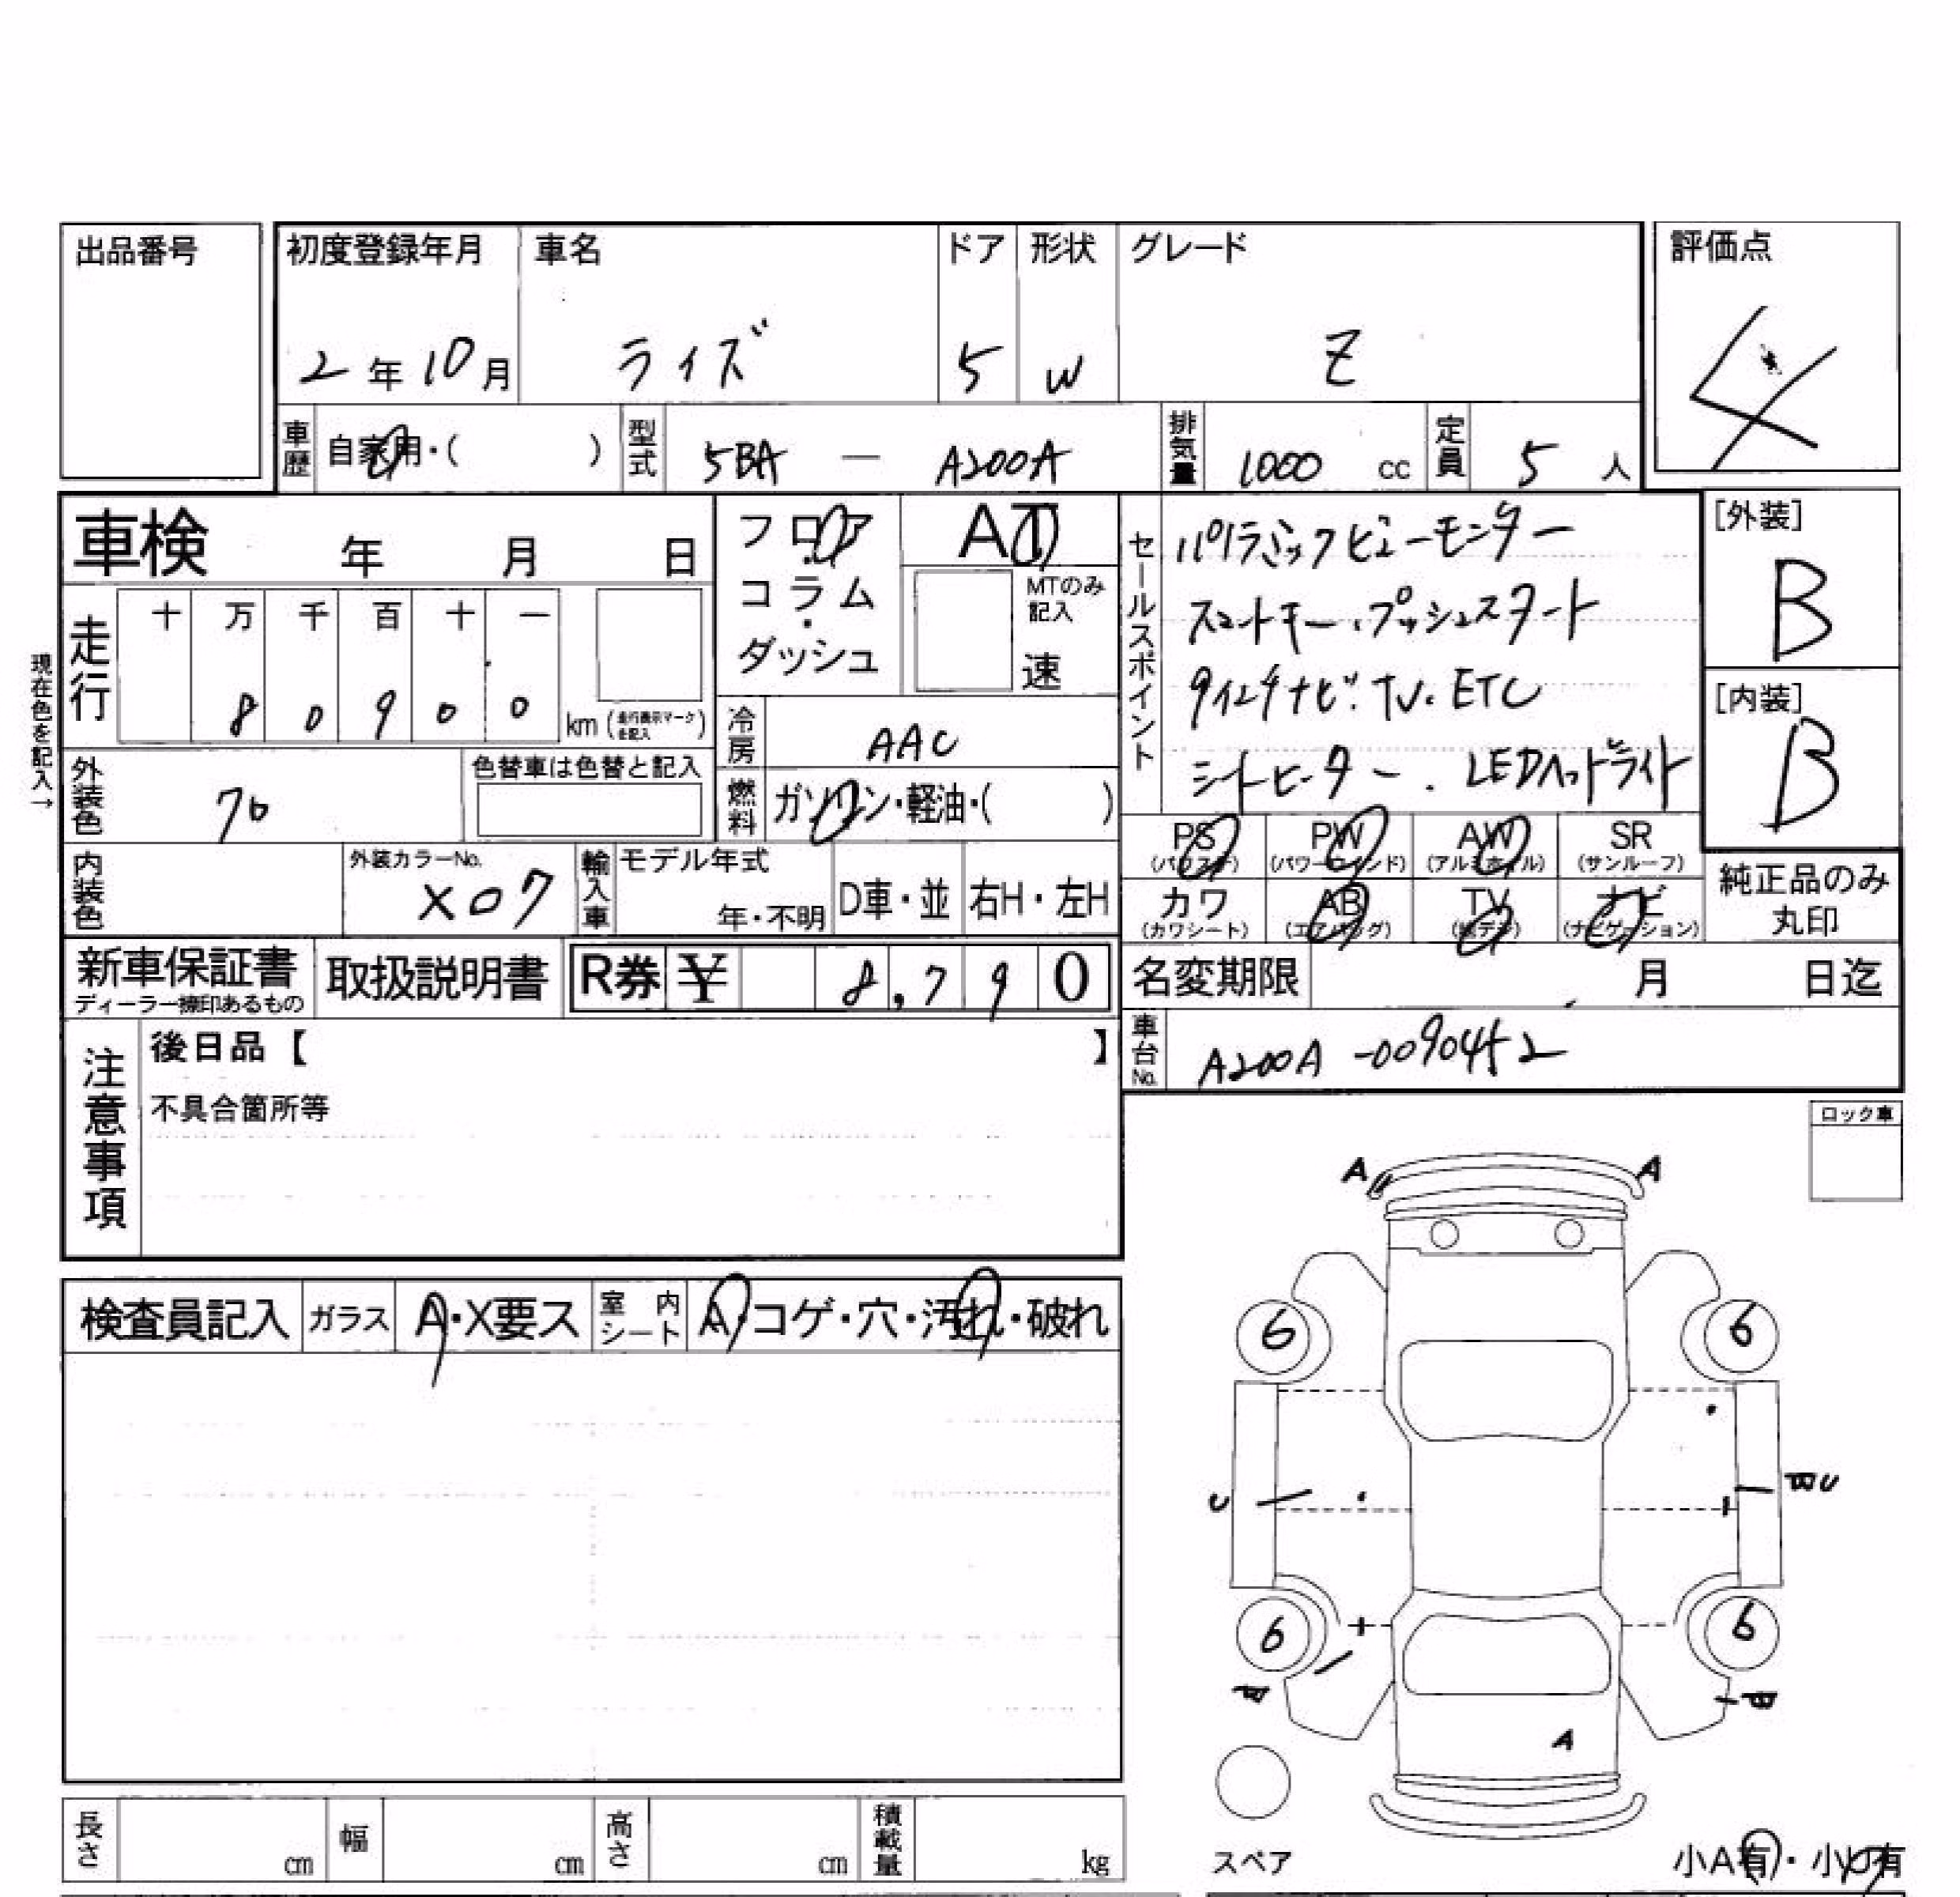 出品番号
初度登録年月 車名 ドア 形状 グレード 評価点
2年10月 ライズ 5 W Z 4
車歴 自家用・( ) 型式 5BA — A200A 排気量 1000 cc 定員 5 人
車検 年 月 日
フロア
コラム
・
ダッシュ
AT
MTのみ
記入
速
現在色を記入→
走行 十 万 千 百 十 一
8 0 9 0 0
km (走行表示マークを記入)
冷房 AAC
外装色 色替車は色替と記入
燃料 ガソリン・軽油・( )
内装色 外装カラーNo. X07 輸入車 モデル年式 年・不明 D車・並 右H・左H
セールスポイント
パノラミックビューモニター
スマートキー・プッシュスタート
9インチナビ・TV・ETC
シートヒーター ・ LEDヘッドライト
[外装]
B
[内装]
B
PS PW AW SR
(パワステ) (パワーウインド) (アルミホイル) (サンルーフ)
カワ AB TV ナビ
(カワシート) (エアバッグ) (純テレ) (ナビゲーション)
純正品のみ
丸印
新車保証書
ディーラー捺印あるもの
取扱説明書 R券 ¥ 8,790
名変期限 月 日迄
車台No. A200A-0090452
注意事項
後日品【 】
不具合箇所等
ロック車
検査員記入 ガラス A・X要ス 室内シート A・コゲ・穴・汚れ・破れ
A A
6 6
C BC
6 6
A
長さ cm 幅 cm 高さ cm 積載量 kg
スペア
小A有・小U有